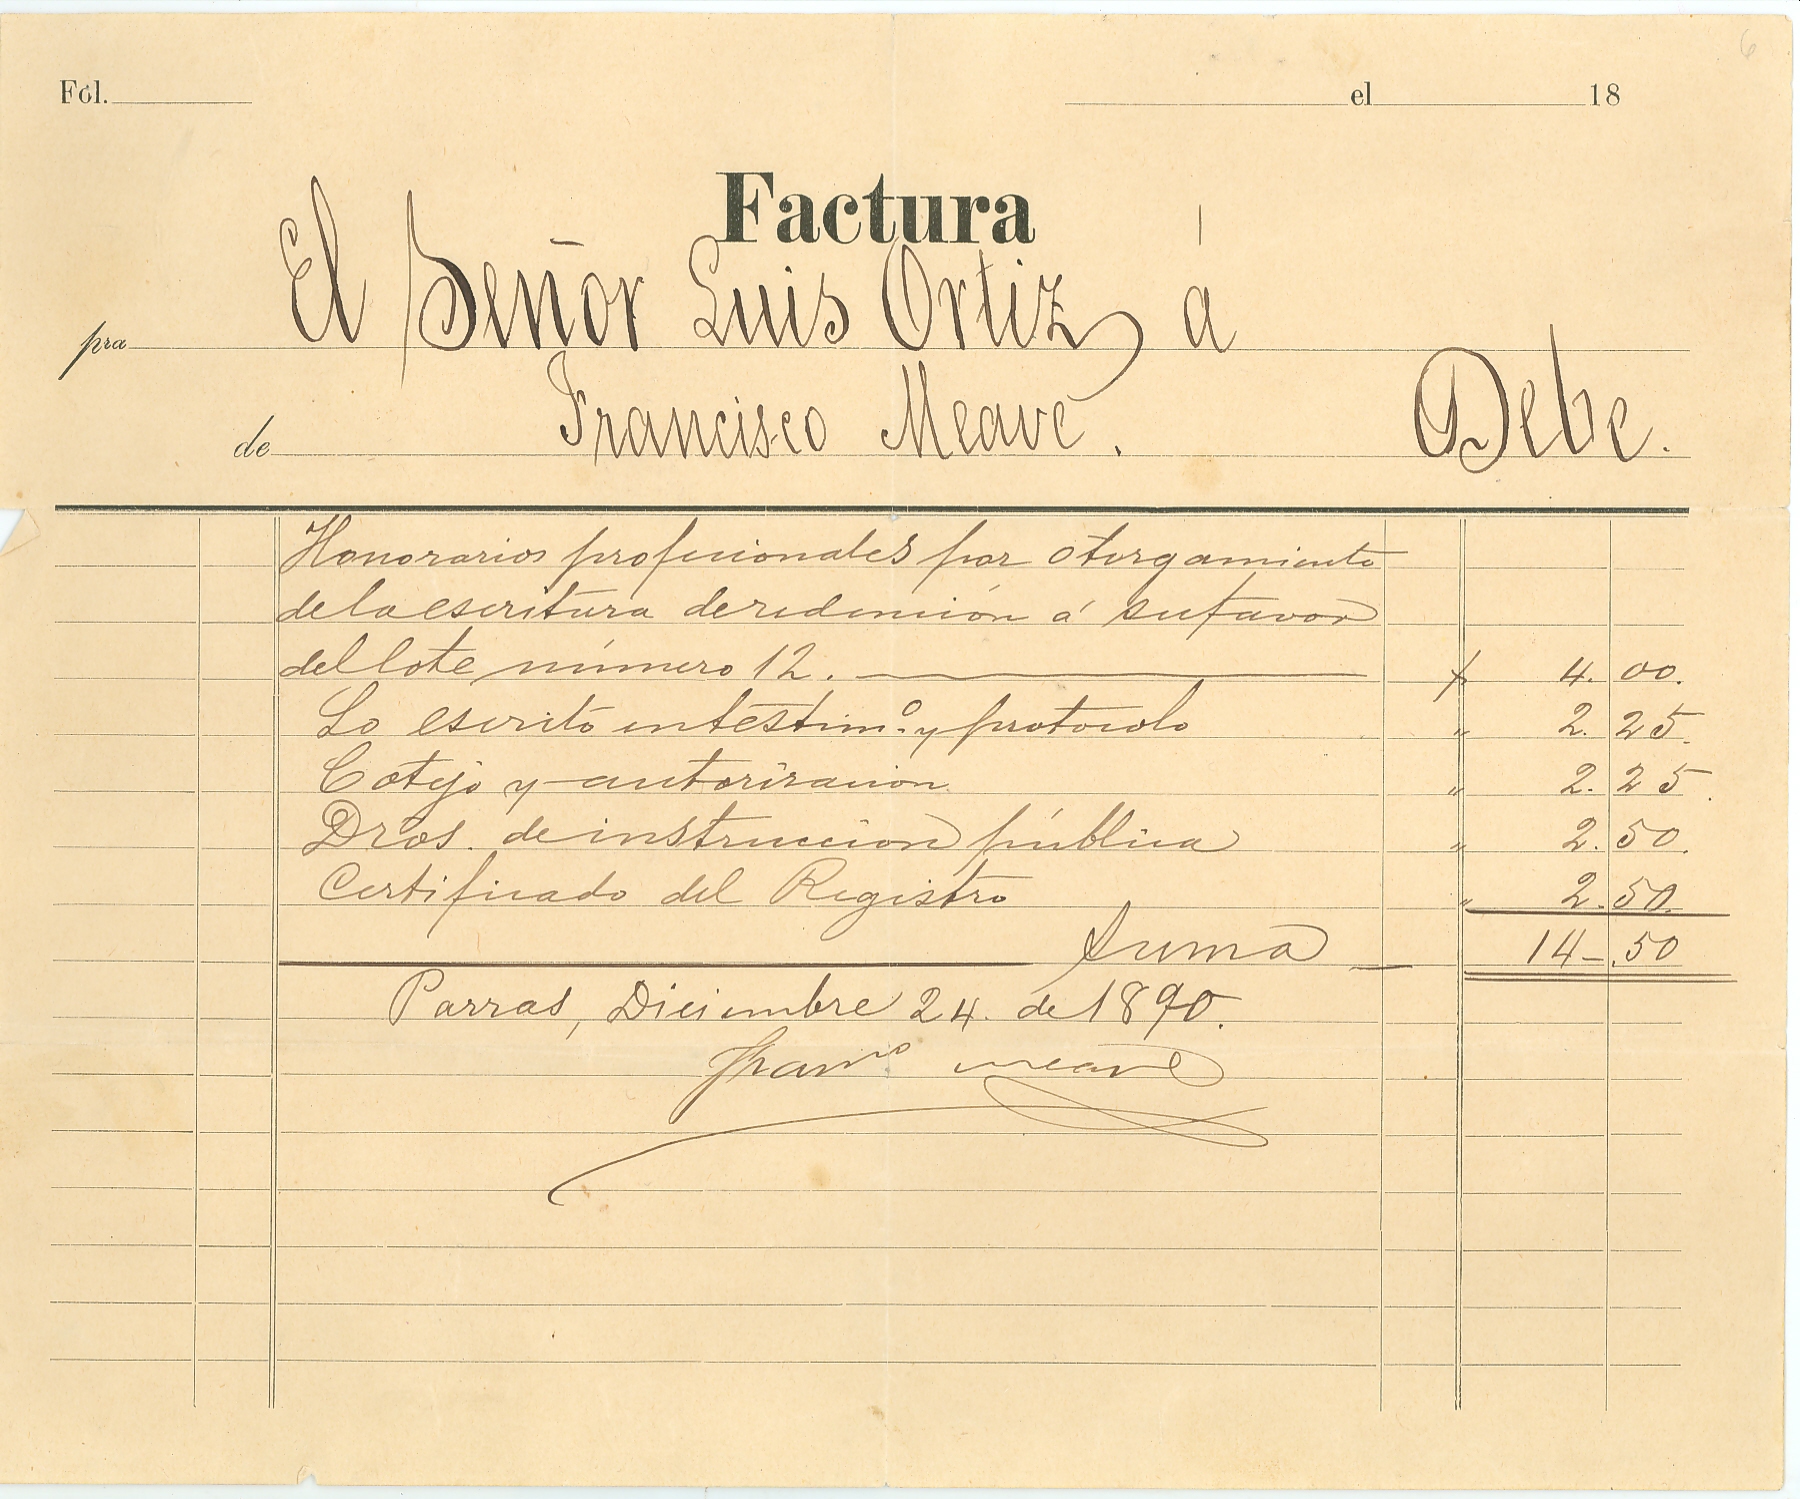 6
Fól. el 18
Factura
pra El Señor Luis Ortiz á
de Francisco Meave. Debe.
Honorarios profecionales por otorgamiento
de la escritura de redención á su favor
del lote número 12. $ 4. 00.
Lo escrito en testimº. y protocolo " 2. 25.
Cotejo y autorizacion " 2. 25.
Dros. de instruccion pública " 2. 50.
Certificado del Registro " 2. 50.
Suma 14-.50
Parras, Diciembre 24. de 1890.
Franᶜᵒ Meave